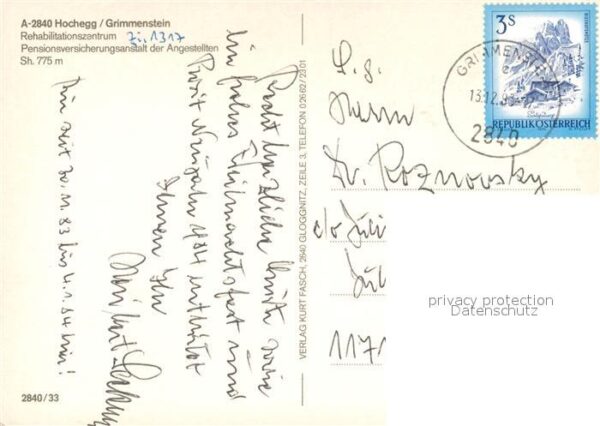 A-2840 Hochegg / Grimmenstein
Rehabilitationszentrum Zi. 1317
Pensionsversicherungsanstalt der Angestellten
Sh. 775 m
Recht herzliche Grüße sowie
ein frohes Weihnachtsfest und
Prosit Neujahr 1984 entbietet
Ihnen Ihr
Bin seit 30.11.83 bis 4.1.84 hier!
2840/33
VERLAG KURT FASCH, 2640 GLOGGNITZ, ZEILE 3, TELEFON 0 26 62 / 23 01
3 S
REPUBLIK ÖSTERREICH
GRIMMENSTEIN
13.12.83
2840
Herrn
Dr. Roznovsky
c/o Juli
Jul
1171
privacy protection
Datenschutz